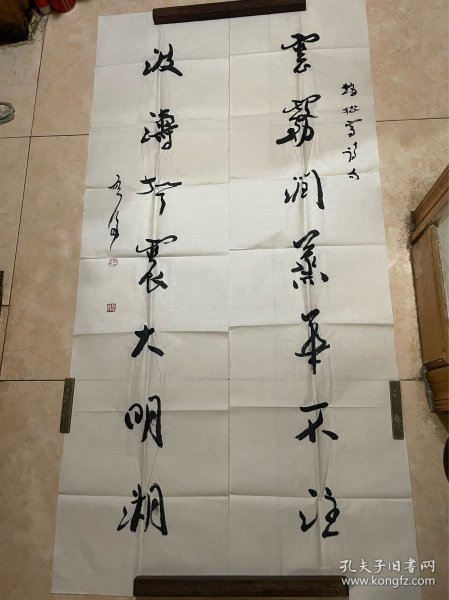 雲霧潤蒸華不注
趙松雪詩句
波濤聲震大明湖
孔夫子旧书网
www.kongfz.com